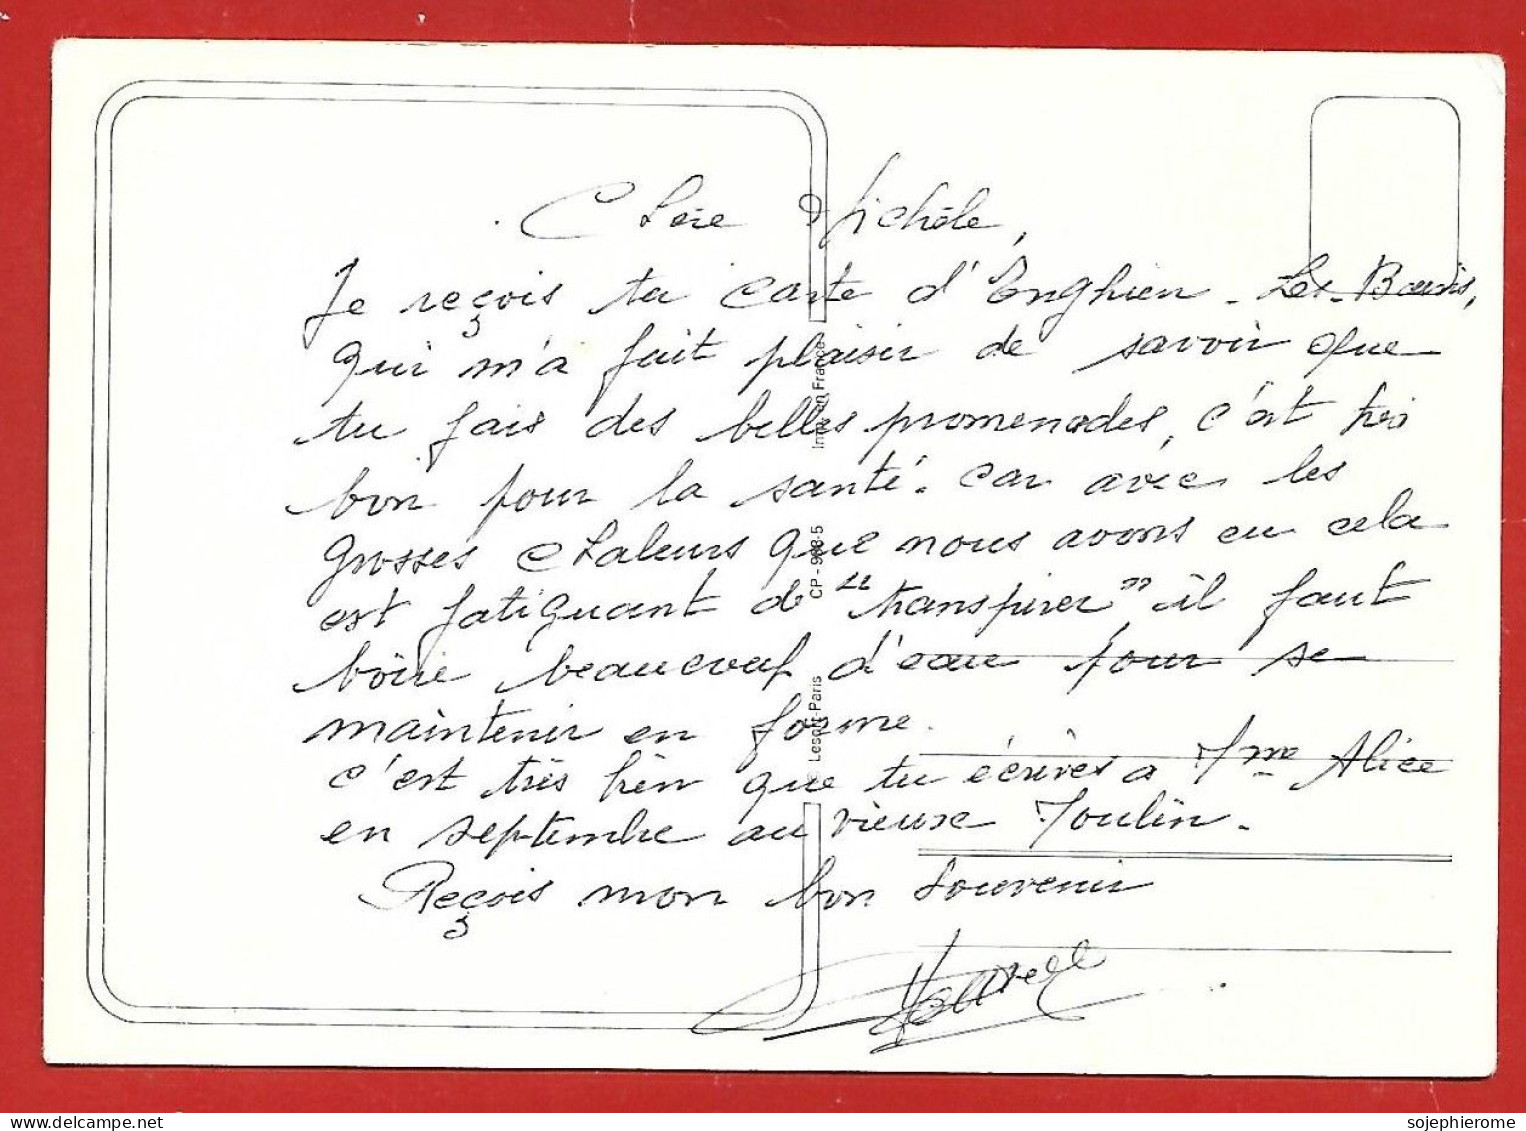 Chère Michèle,
Je reçois ta carte d'Enghien-Les-Bains,
qui m'a fait plaisir de savoir que
tu fais des belles promenades, c'est très
bon pour la santé. car avec les
grosses chaleurs que nous avons eu cela
est fatiguant de "transpirer" il faut
boire beaucoup d'eau pour se
maintenir en forme.
c'est très bien que tu écrives a Mme Alice
en septembre au vieux Moulin.
Reçois mon bon souvenir
Imprimé en France
CP - 988-5
Paris
delcampe.net
sojephierome